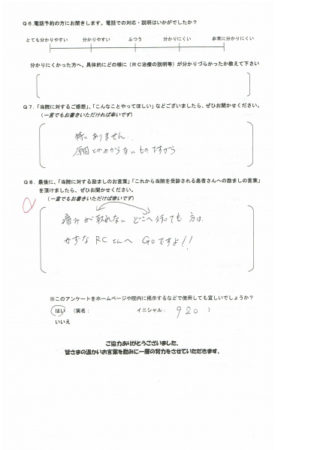 Q6.電話予約の方にお聞きします。電話での対応・説明はいかがでしたか?
とても分かりやすい 分かりやすい ふつう 分かりにくい 非常に分かりにくい
分かりにくかった方へ、具体的にどの様に(RC治療の説明等)が分かりづらかったか教えて下さい
Q7.「当院に対するご感想」、「こんなことやってほしい」などございましたら、ぜひお聞かせください。
(一言でもお書きいただければ幸いです)
特にありません。
原因とかわからないものですから
Q8.最後に、「当院に対する励ましのお言葉」「これから当院を受診される患者さんへの励ましの言葉」
を頂けましたら、ぜひお聞かせください。
(一言でもお書きいただけば幸いです)
痛みが取れない どこへ行っても方は
RCさんへ Goですよ!!
※このアンケートをホームページや院内に掲示するなどで使用しても宜しいでしょうか?
はい (演名: イニシャル:
いいえ
ご協力ありがとうございました。
皆さまの温かいお言葉を励みに一層の努力をさせていただきます。